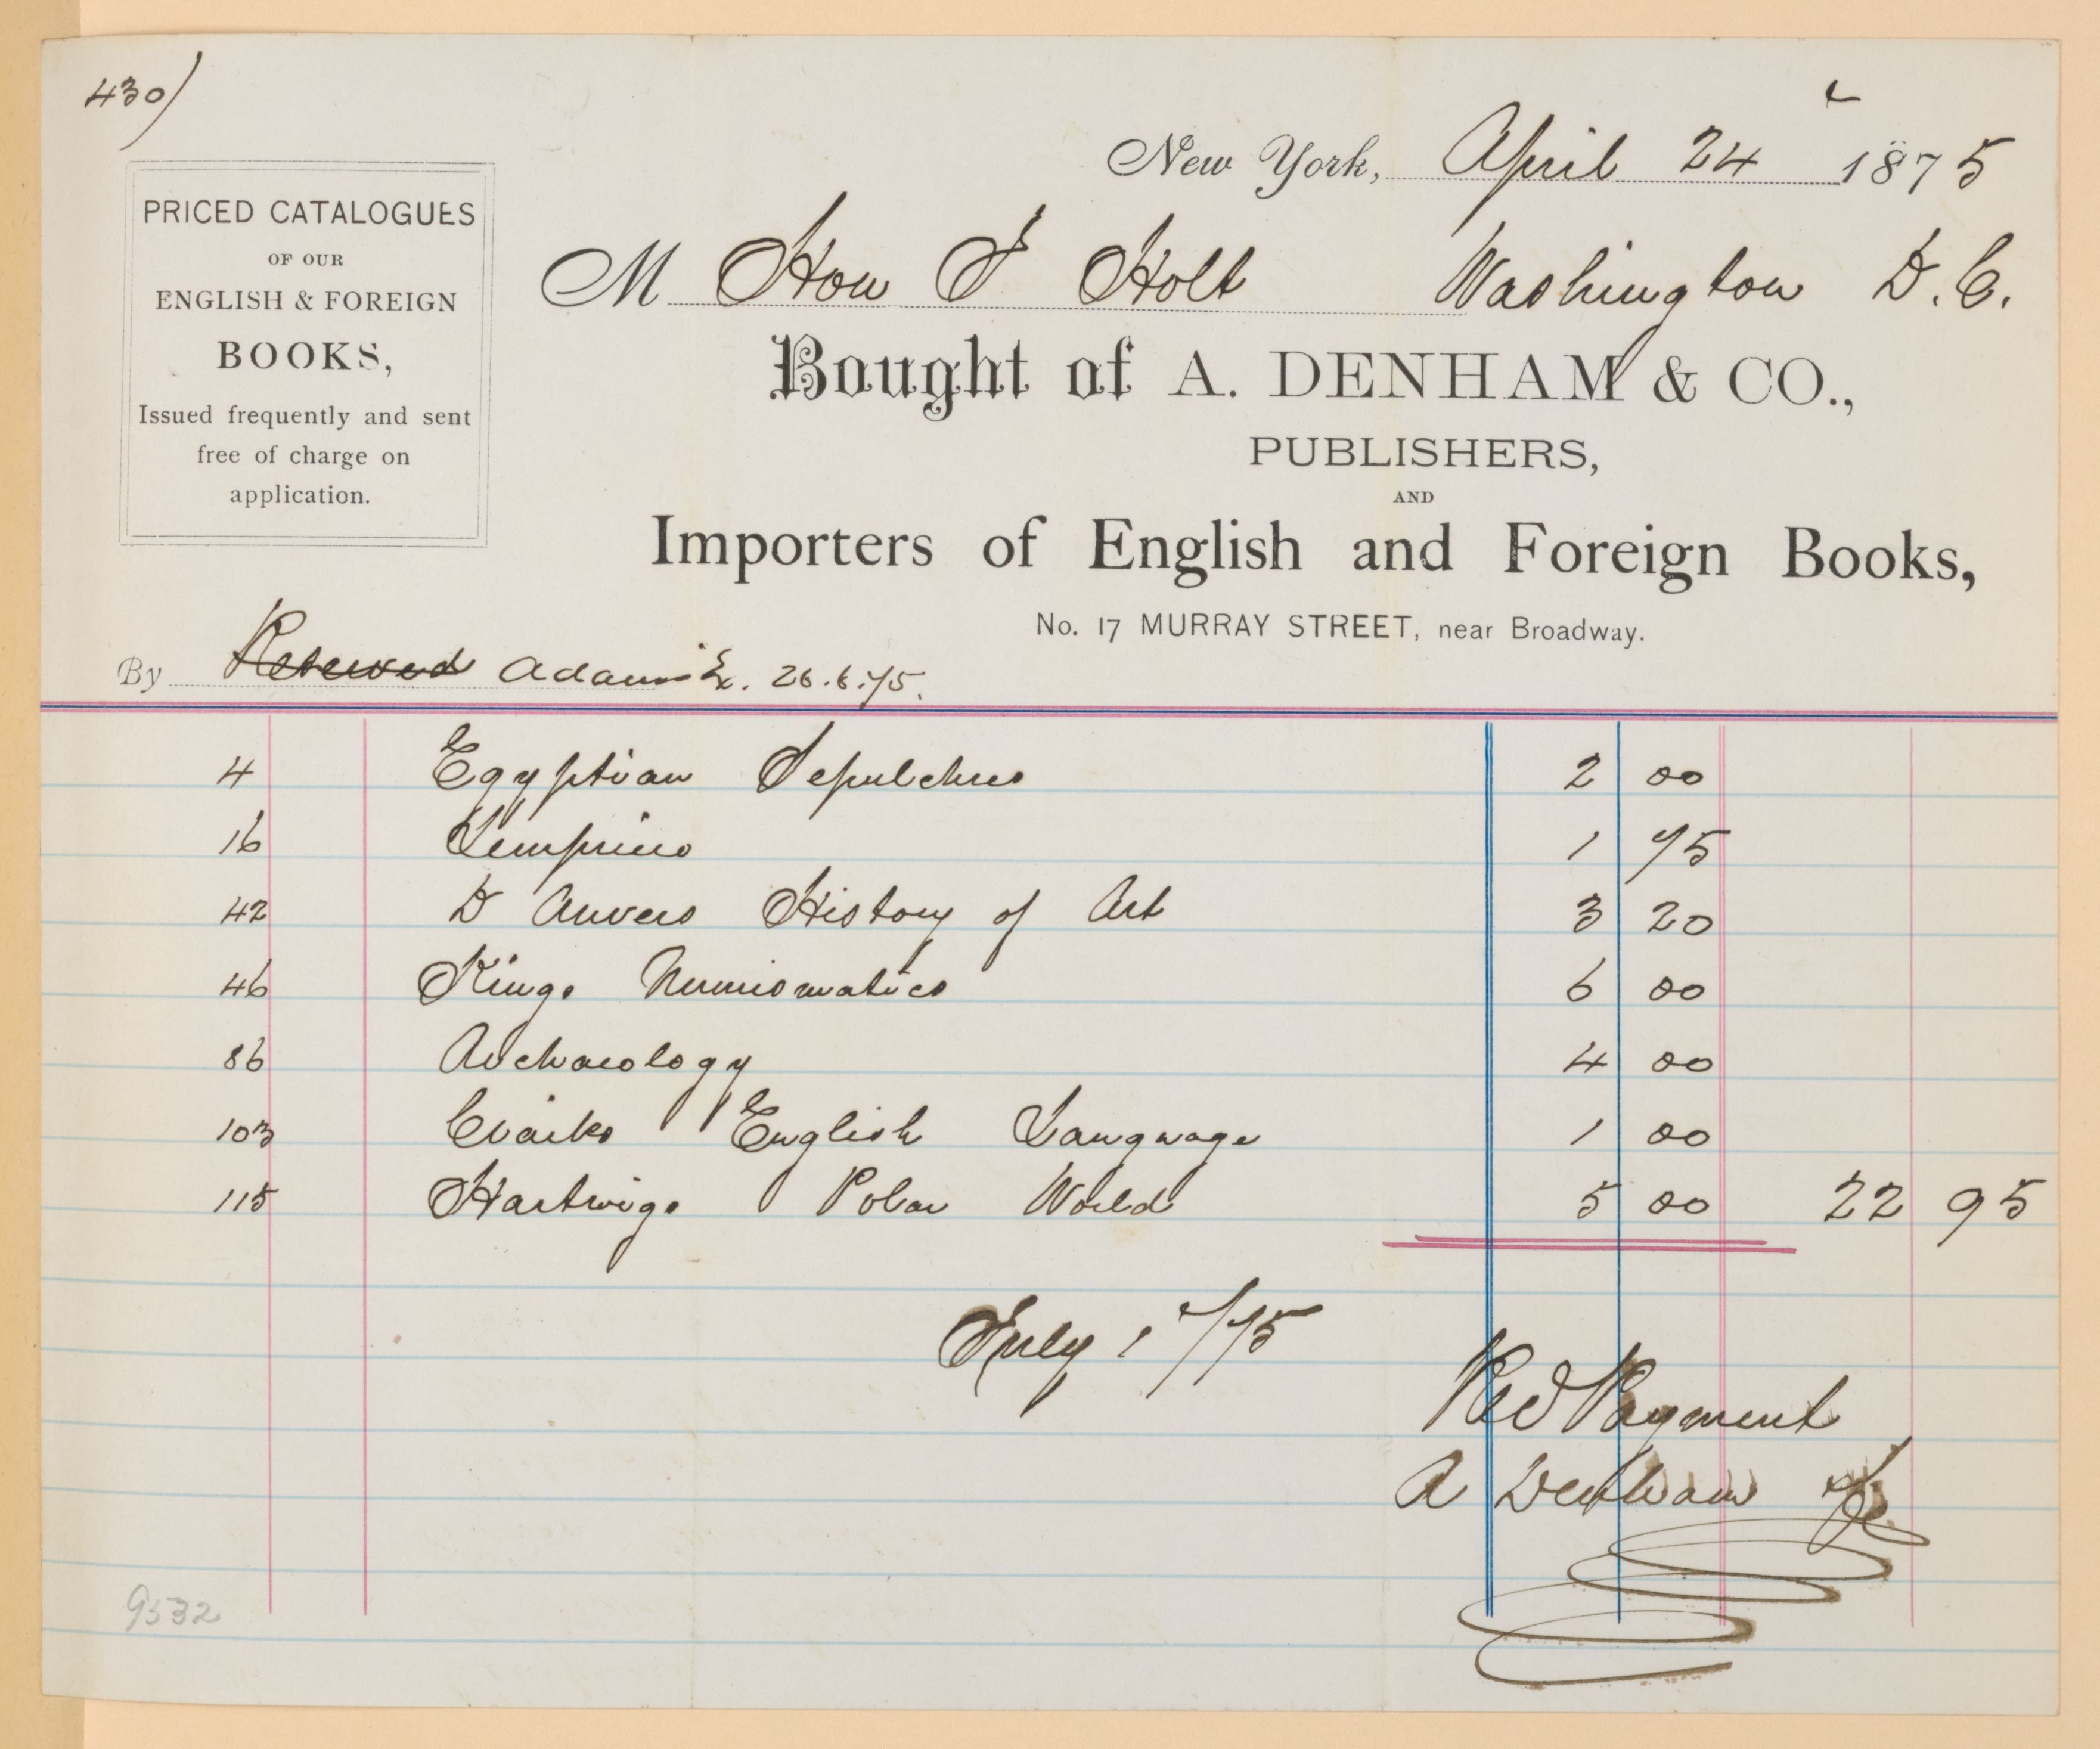 430)
PRICED CATALOGUES
OF OUR
ENGLISH & FOREIGN
BOOKS,
Issued frequently and sent
free of charge on
application.
New York, April 24 1875
M Hon J Holt Washington D.C.
Bought of A. DENHAM & CO.,
PUBLISHERS,
AND
Importers of English and Foreign Books,
No. 17 MURRAY STREET, near Broadway.
By Adams Ex. 26.6.75.
4 Egyptian Sepulchres 2 00
16 Lempriere 1 75
42 D Anvers History of Art 3 20
46 Kings Numismatics 6 00
86 Archaeology 4 00
103 Craiks English Language 1 00
115 Hartwigs Polar World 5 00 22 95
July 1/75
Recd Payment
A Denham
9532